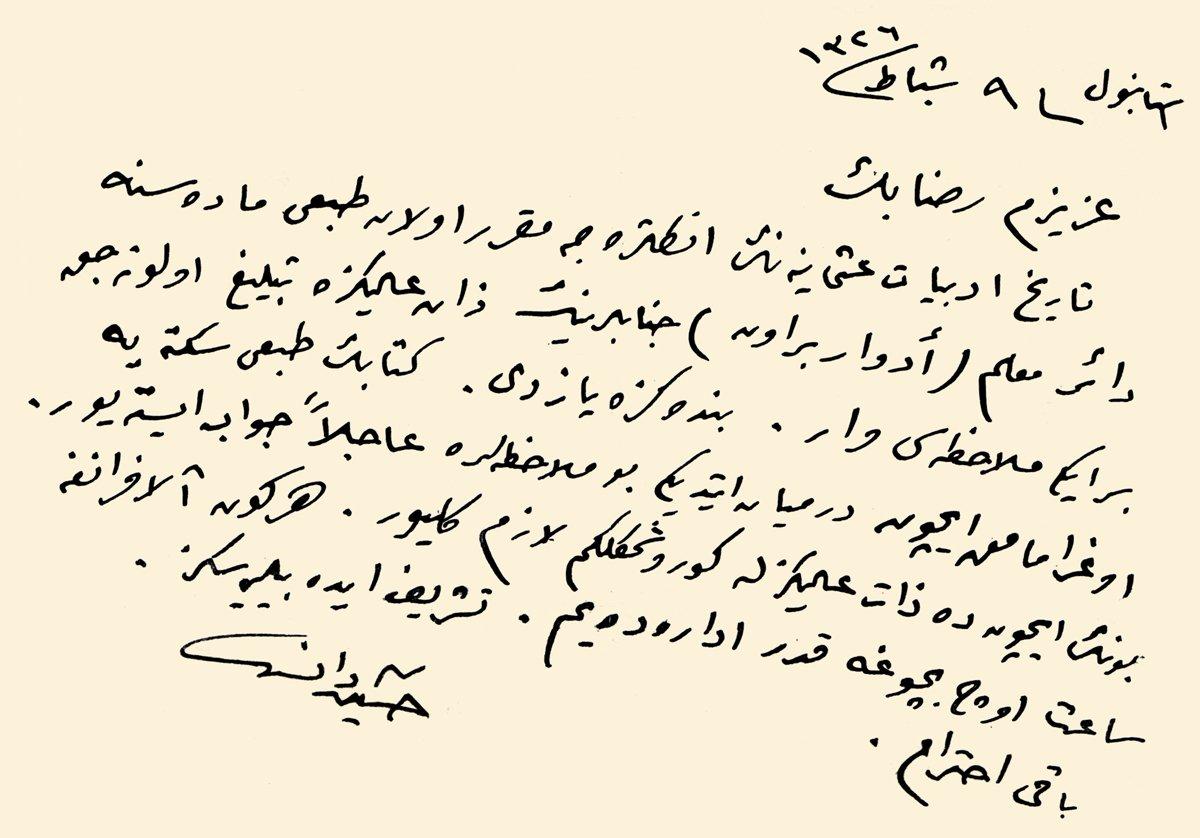 ستانبول ٩ شباط ١٣٢٦
عزيزم رضا بك
تاريخ ادبيات عثمانيه نك انكلتره جه مقرر اولان طبعى ماده سنه
دائر معلم (أدوار براون) جنابلرينك ذات عاليكزه تبليغ اولونه جق
بر ايكى ملاحظه سى وار . بنده كزه يازدى . كتابك طبعى سكته يه
اوغرامامق ايچون درميان ايتديكى بو ملاحظه لره عاجلاً جواب ايسته يور .
بونك ايچون ده ذات عاليكزله كوروشمكلكم لازم كليور . هركون آلافرانغه
ساعت اوچ بچوغه قدر اداره ده يم . تشريف ايده بيليرسكز .
باقى احترام .
حسين دانش